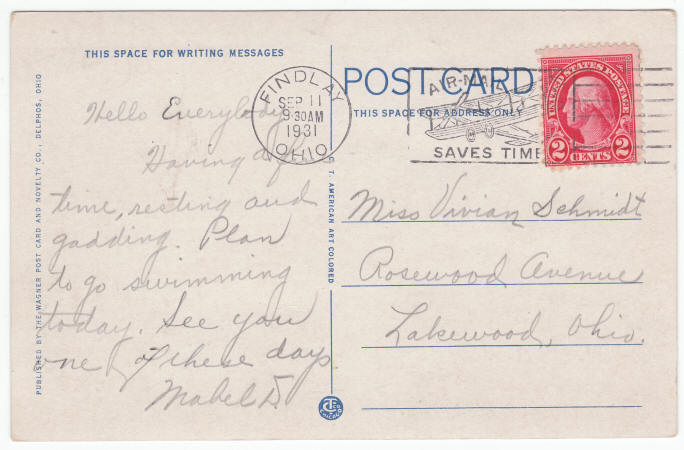 THIS SPACE FOR WRITING MESSAGES
POST CARD
THIS SPACE FOR ADDRESS ONLY
FINDLAY
SEP 11
9 30AM
1931
OHIO
AIR-MAIL
SAVES TIME
UNITED STATES POSTAGE
2 CENTS 2
Hello Everybody
Having a
time, resting and
gadding. Plan
to go swimming
today. See you
one of these days
Mabel D.
Miss Vivian Schmidt
Rosewood Avenue
Lakewood, Ohio.
PUBLISHED BY THE WAGNER POST CARD AND NOVELTY CO., DELPHOS, OHIO
C. T. AMERICAN ART COLORED